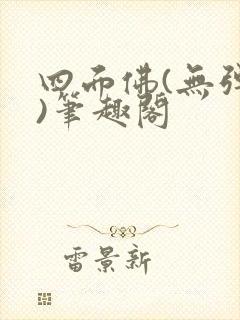 四而佛(無彈
)筆趣閣
雷景新